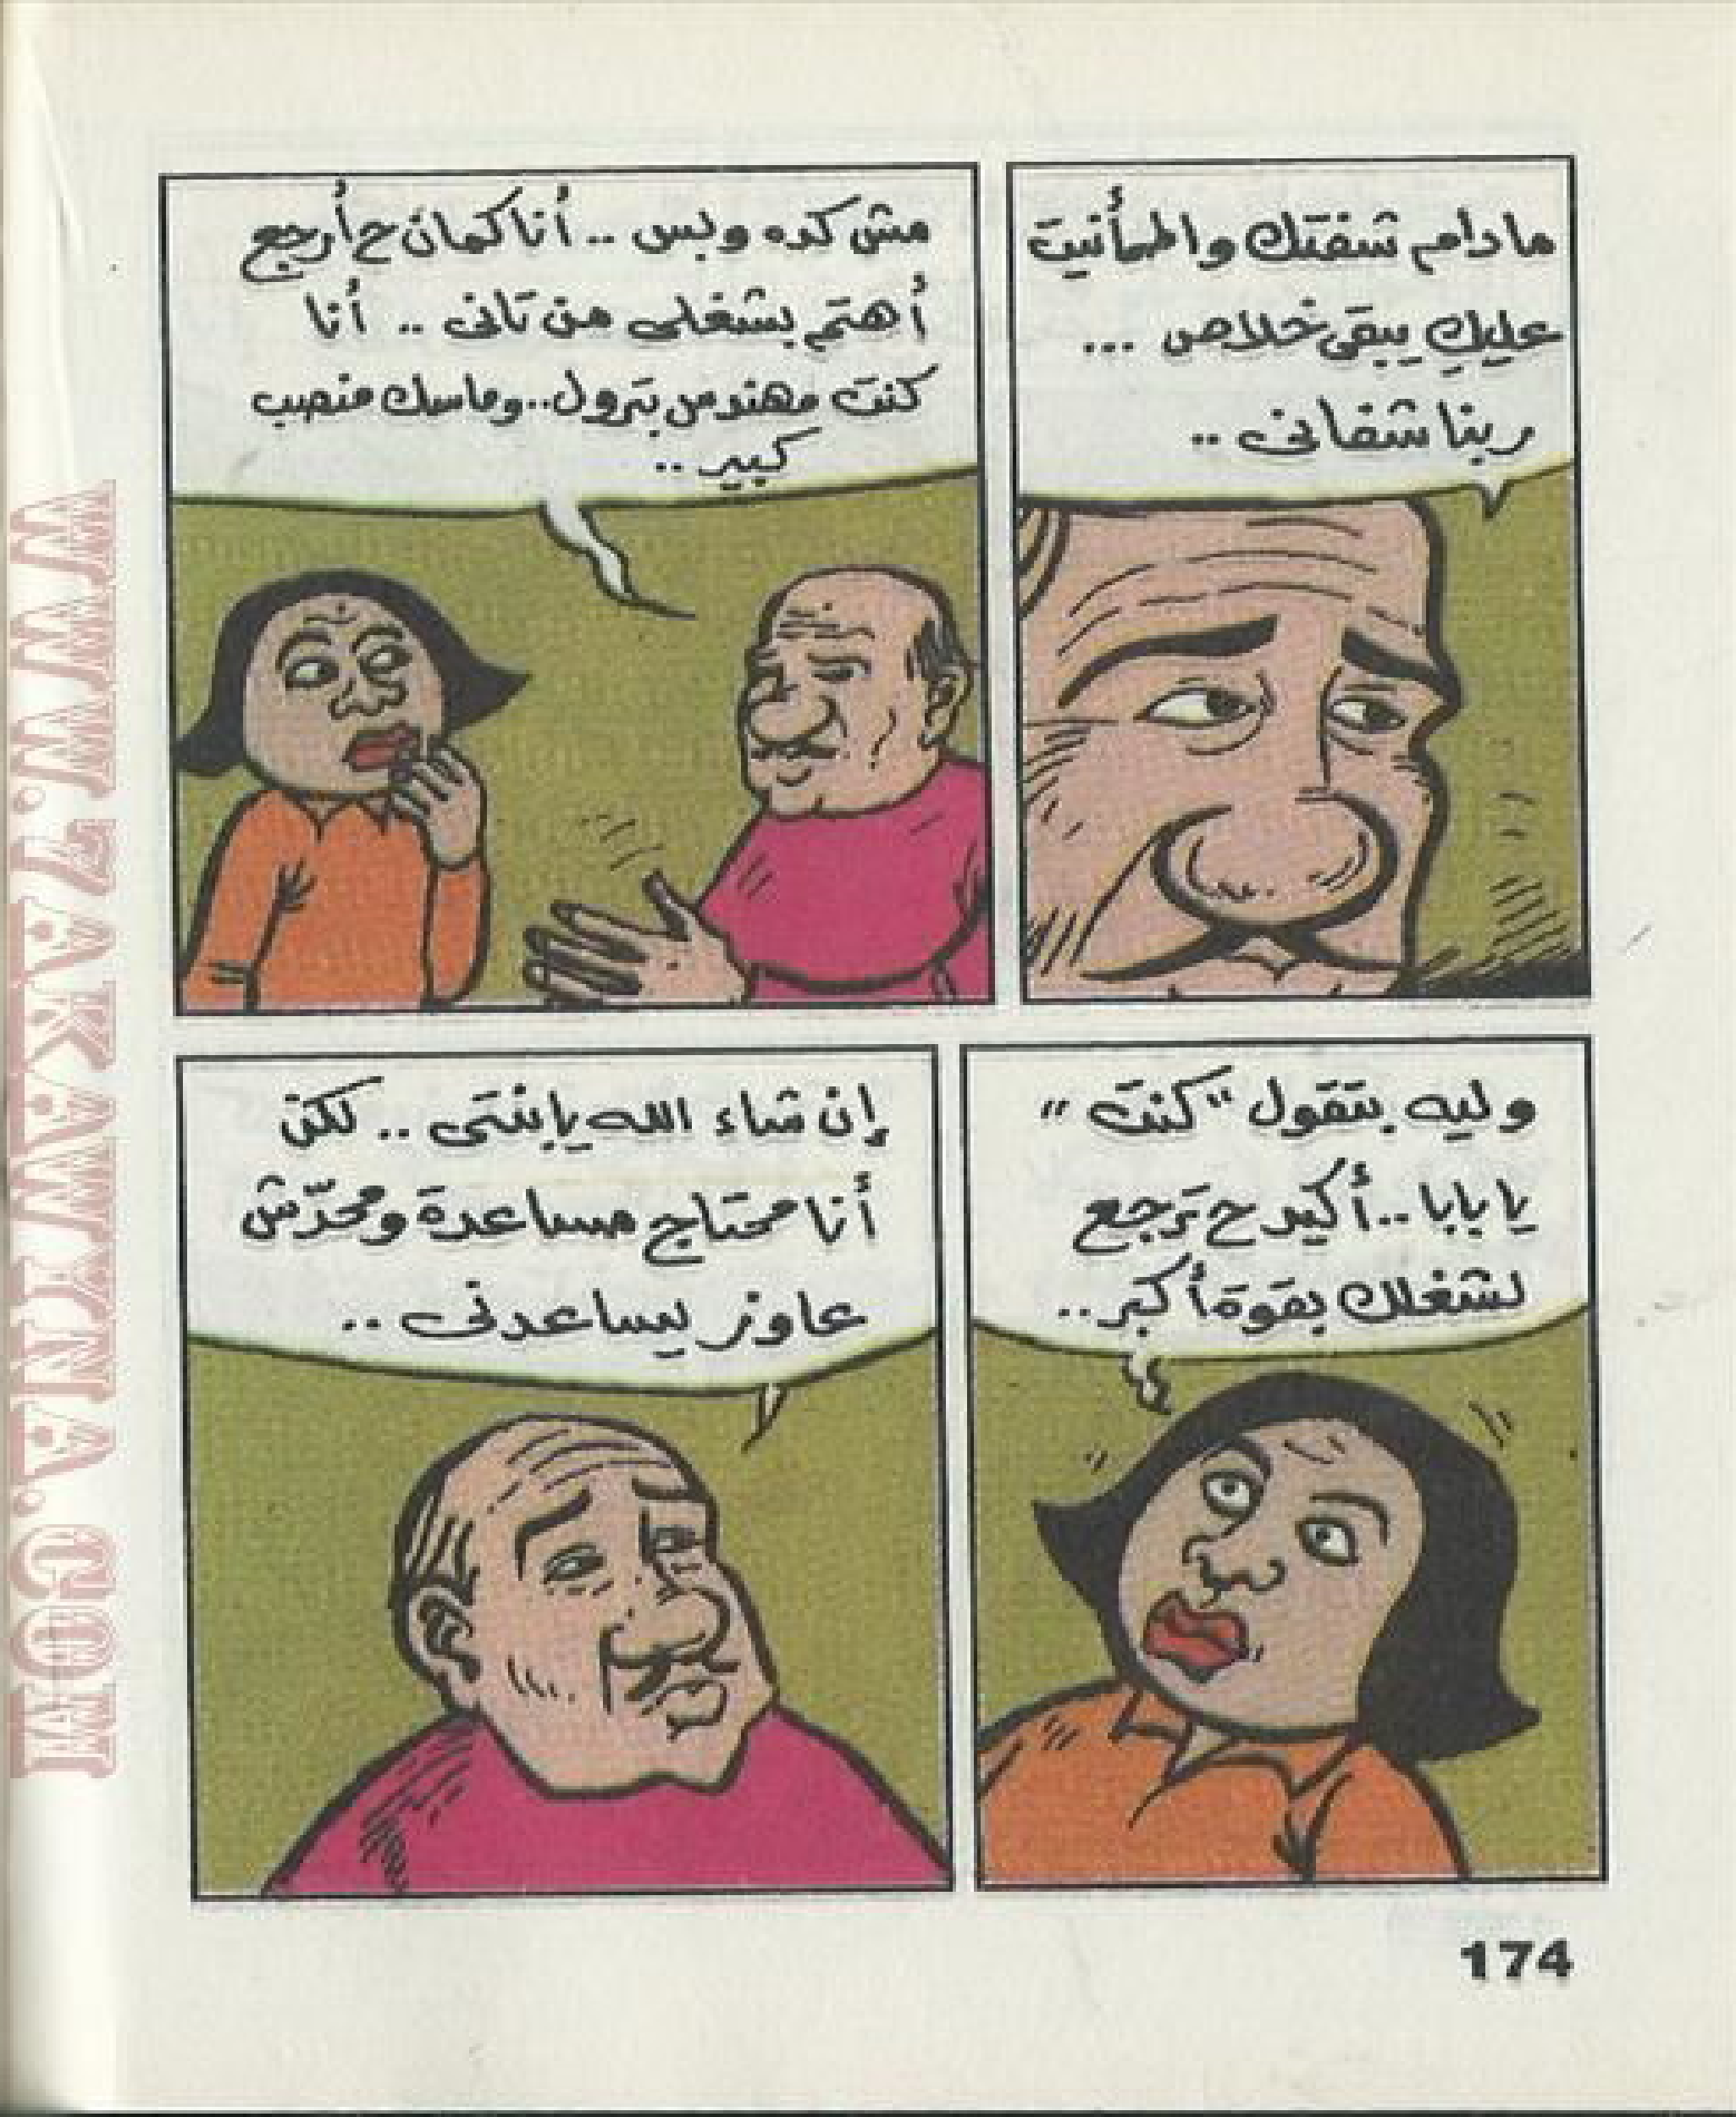 مادام شفتك واطمأنيت
عليكِ يبقى خلاص ...
ربنا شفانى ..
مش كده وبس .. أنا كمان ح أرجع
أهتم بشغلى من تانى .. أنا
كنت مهندس بترول.. وماسك منصب
كبير ..
وليه بتقول "كنت"
يا بابا.. أكيد ح ترجع
لشغلك بقوة أكبر..
إن شاء الله يابنتى .. لكن
أنا محتاج مساعدة ومحدّش
عاوز يساعدنى ..
174
WWW.7AKAWINA.COM